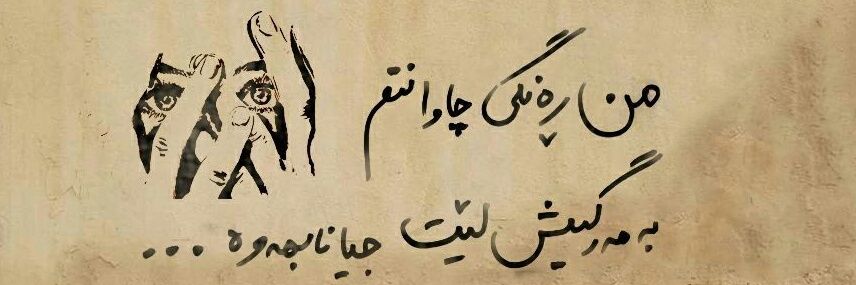 من ڕەنگی چاوانتم
بە مەرگیش لێت جیا نابمەوە...